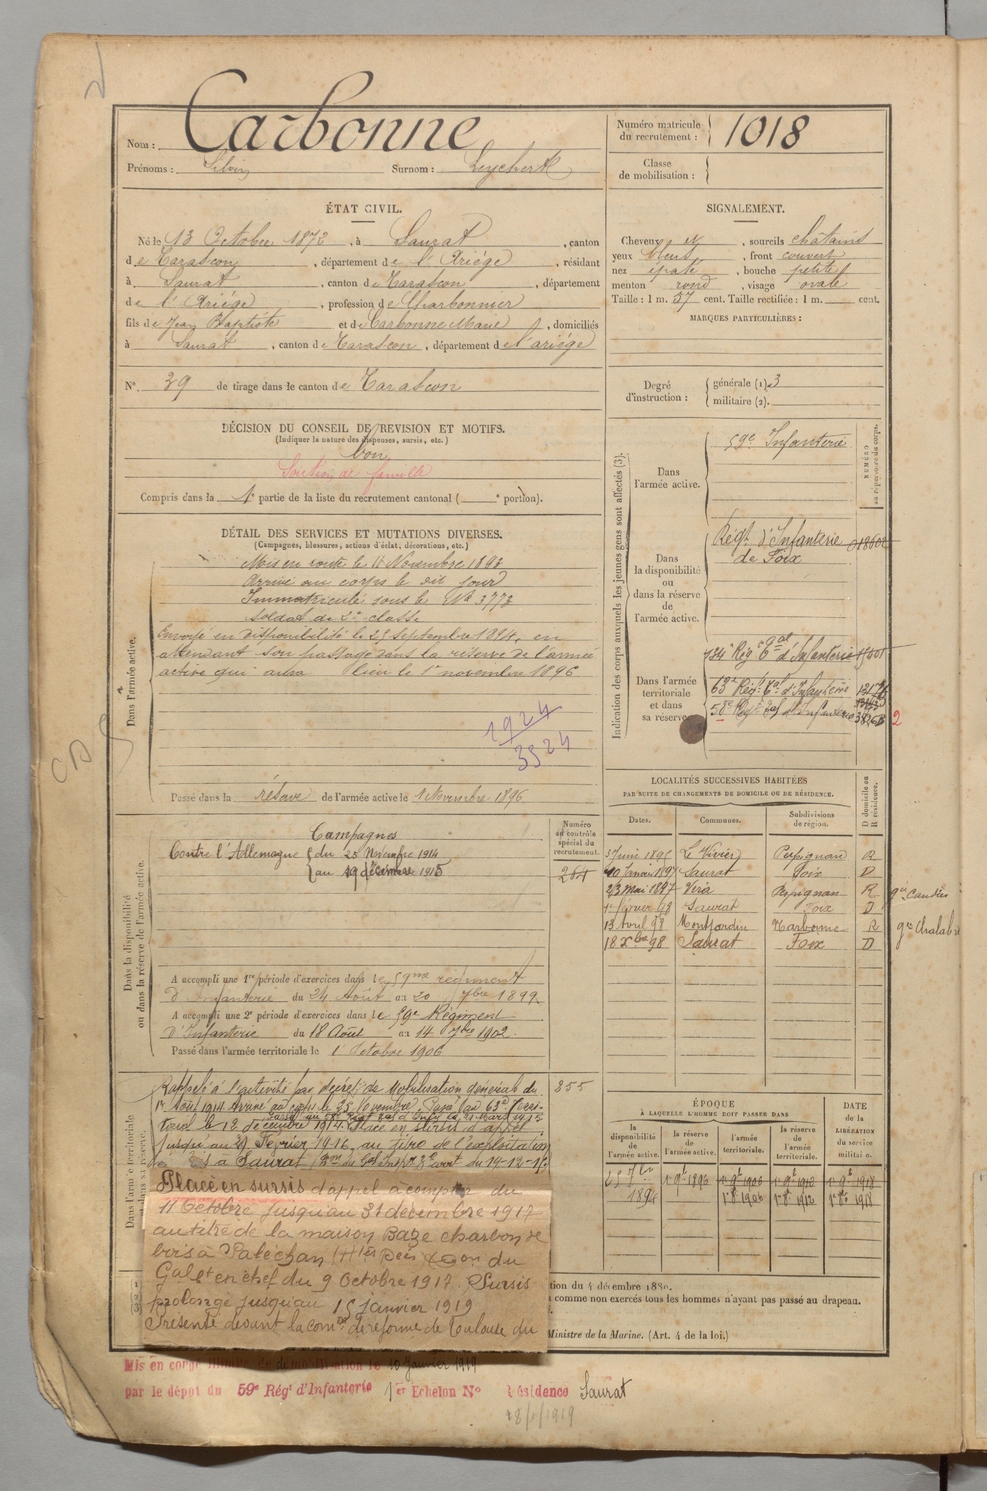 Nom : Carbonne
Prénoms : Silvin Surnom :
Numéro matricule du recrutement : 1018
Classe de mobilisation :
ÉTAT CIVIL.
Né le 13 Octobre 1872, à Saurat, canton
de Tarascon, département de l'Ariège, résidant
à Saurat, canton de Tarascon, département
de l'Ariège, profession de Charbonnier
fils de Jean Baptiste et de Carbonne Marie, domiciliés
à Saurat, canton de Tarascon, département de l'ariége
N° 39 de tirage dans le canton de Tarascon
SIGNALEMENT.
Cheveux et, sourcils châtains
yeux bleus, front couvert
nez épaté, bouche petite
menton rond, visage ovale
Taille : 1 m. 57 cent. Taille rectifiée : 1 m. cent.
MARQUES PARTICULIÈRES :
Degré d'instruction : générale (1). 3
militaire (2).
DÉCISION DU CONSEIL DE REVISION ET MOTIFS.
(Indiquer la nature des dispenses, sursis, etc.)
bon
Soutien de famille
Compris dans la 1e partie de la liste du recrutement cantonal ( e portion).
DÉTAIL DES SERVICES ET MUTATIONS DIVERSES.
(Campagnes, blessures, actions d'éclat, décorations, etc.)
Dans l'armée active.
Mis en route le 11 Novembre 1893
Arrivé au corps le dit jour
Immatriculé sous le No 3773
Soldat de 2e classe
Envoyé en disponibilité le 23 Septembre 1894, en
attendant son passage dans la réserve de l'armée
active qui aura lieu le 1er novembre 1896
1924
3524
Passé dans la réserve de l'armée active le 1 Novembre 1896
Indication des corps auxquels les jeunes gens sont affectés (3).
NUMÉRO au répertoire du corps.
Dans l'armée active.
59e Infanterie
Dans la disponibilité ou dans la réserve de l'armée active.
Régt d'Infanterie
de Foix
Dans l'armée territoriale et dans sa réserve
134e Régt tal d'Infanterie
63e Régt tal d'Infanterie
58e Régt tal d'Infanterie
2
LOCALITÉS SUCCESSIVES HABITÉES
PAR SUITE DE CHANGEMENTS DE DOMICILE OU DE RÉSIDENCE.
Dates. Communes. Subdivisions de région. D domicile ou R résidence.
3 Juin 1895 Le Vivier Perpignan R
10 Janvier 1897 Saurat Foix D
23 Mai 1897 Vera Perpignan R
1er février 98 Saurat Foix D
13 avril 98 Montjardin Narbonne R
18 Xbre 98 Saurat Foix D
gie Caudiès
gie Chalabre
Dans la disponibilité ou dans la réserve de l'armée active.
Numéro au contrôle spécial du recrutement.
Campagnes
Contre l'Allemagne du 25 Novembre 1914
au 19 décembre 1915
264
A accompli une 1re période d'exercices dans le 59me régiment
d'Infanterie du 24 Août au 20 7bre 1899.
A accompli une 2e période d'exercices dans le 59e Régiment
d'Infanterie du 18 Août au 14 7bre 1902.
Passé dans l'armée territoriale le 1 Octobre 1906
Dans l'armée territoriale et dans sa réserve.
Rappelé à l'activité par décret de Mobilisation générale du
1er Août 1914. Arrivé au corps le 25 Novembre. Passé au 63e terri-
torial le 12 décembre 1914. Placé en sursis d'appel
jusqu'au 29 Février 1916, au titre de l'exploitation
à Saurat
355
Placé en sursis d'appel à compter du
11 Octobre jusqu'au 31 décembre 1917
au titre de la maison Baze charbon de
bois à Saléchan (Htes Pées) Don du
Gal et en chef du 9 Octobre 1917. Sursis
prolongé jusqu'au 15 janvier 1919
Présenté devant la comon de réforme de Toulouse du
ÉPOQUE
À LAQUELLE L'HOMME DOIT PASSER DANS
la disponibilité de l'armée active. la réserve de l'armée active. l'armée territoriale. la réserve de l'armée territoriale.
DATE de la LIBÉRATION du service militaire.
1894 1er 9bre 1896 1er 9bre 1906 1er 9bre 1912 1er 9bre 1918
1er 8bre 1906 1er 8bre 1912 1er 8bre 1918
tion du 4 décembre 1889.
comme non exercés tous les hommes n'ayant pas passé au drapeau.
Ministre de la Marine. (Art. 4 de la loi.)
Mis en congé illimité de démobilisation le 10 janvier 1919
par le dépôt du 59e Régt d'Infanterie 1er Echelon No Résidence Saurat
18/1/1919